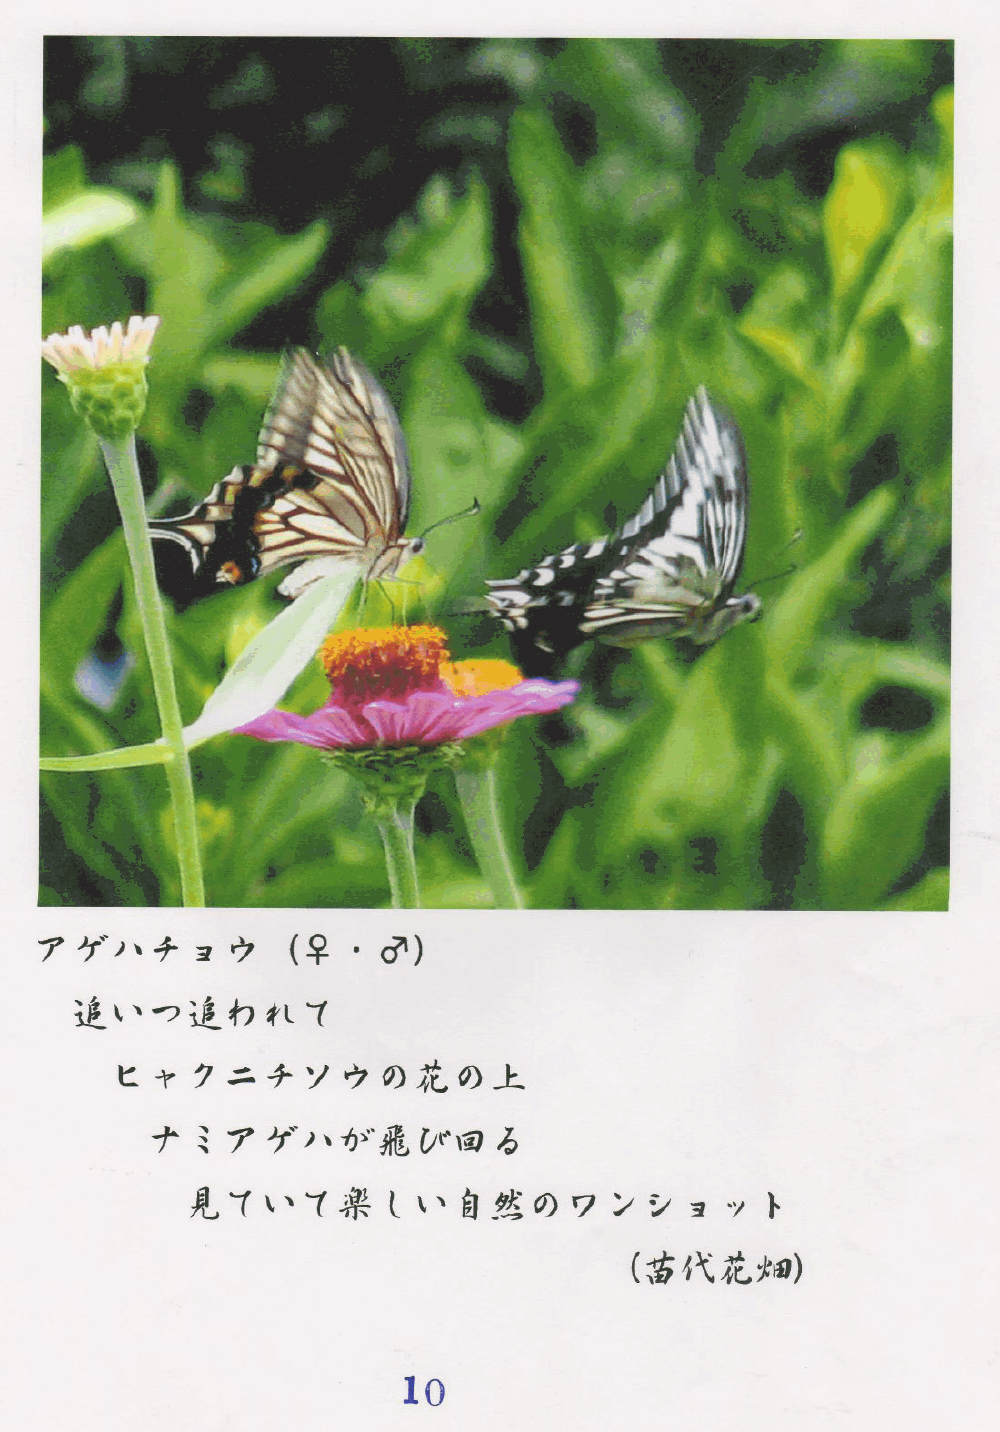 アゲハチョウ（♀・♂）
追いつ追われて
ヒャクニチソウの花の上
ナミアゲハが飛び回る
見ていて楽しい自然のワンショット
（苗代花畑）
10